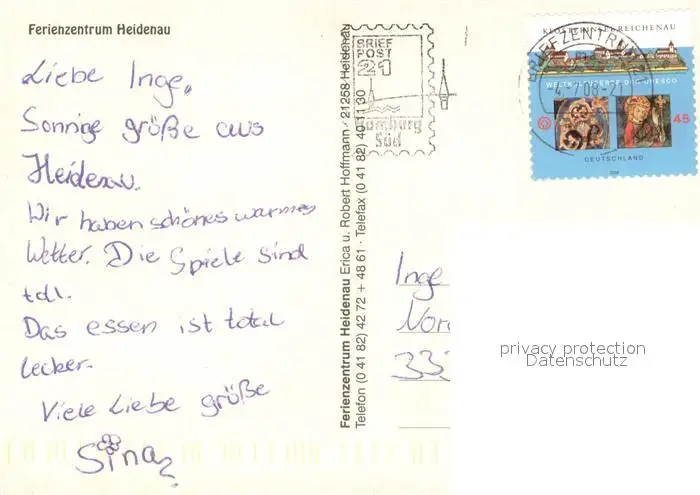 Ferienzentrum Heidenau
Liebe Inge,
Sonnige größe aus
Heidenau.
Wir haben schönes warmes
Wetter. Die Spiele sind
tdl.
Das essen ist total
lecker.
Viele Liebe größe
Sina
Ferienzentrum Heidenau Erica u. Robert Hoffmann · 21258 Heidenau
Telefon (0 41 82) 42 72 + 48 61 · Telefax (0 41 82) 40 11 30
BRIEF
POST
21
Hamburg
Süd
BRIEFZENTRUM 21
REICHENAU
WELTKULTURERBE DER UNESCO
45
DEUTSCHLAND
Inge
Nor
333
privacy protection
Datenschutz